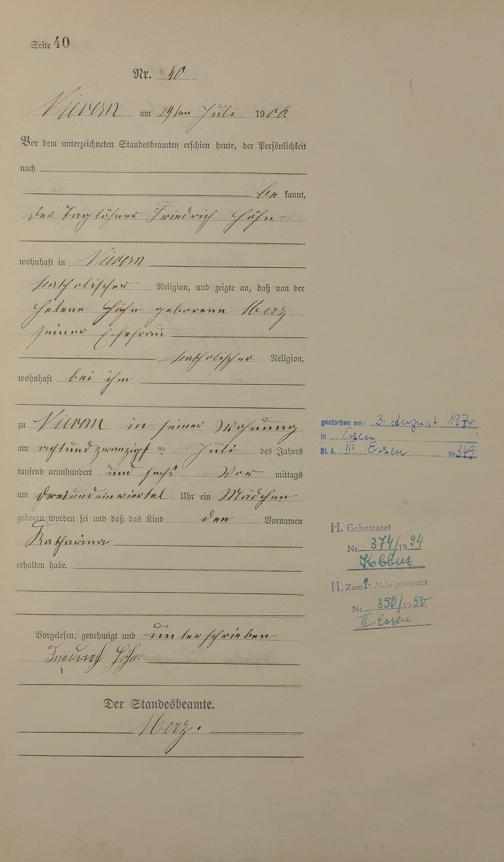 Seite 40
Nr. 40
Nievern am 29ten Juli 1906
Vor dem unterzeichneten Standesbeamten erschien heute, der Persönlichkeit
nach
be kannt,
der Taglöhner Friedrich Höhn
wohnhaft in Nievern
katholischer Religion, und zeigte an, daß von der
Helene Höhn geborenen Merz
seiner Ehefrau
katholischer Religion,
wohnhaft bei ihm
zu Nievern in seiner Wohnung
am achtundzwanzigsten Juli des Jahres
tausend neunhundert und sechs Vor mittags
um dreiundeinviertel Uhr ein Mädchen
geboren worden sei und daß das Kind den Vornamen
Katharina
erhalten habe.
Vorgelesen, genehmigt und unterschrieben
Friedrich Höhn
Der Standesbeamte.
Merz.
gestorben am: 3. August
in Essen
St. A. III Essen Nr. 349
H. Geheiratet
Nr. 374/1924
Koblenz
H. Zum 2. Male geheiratet
Nr. 350/1950
II Essen